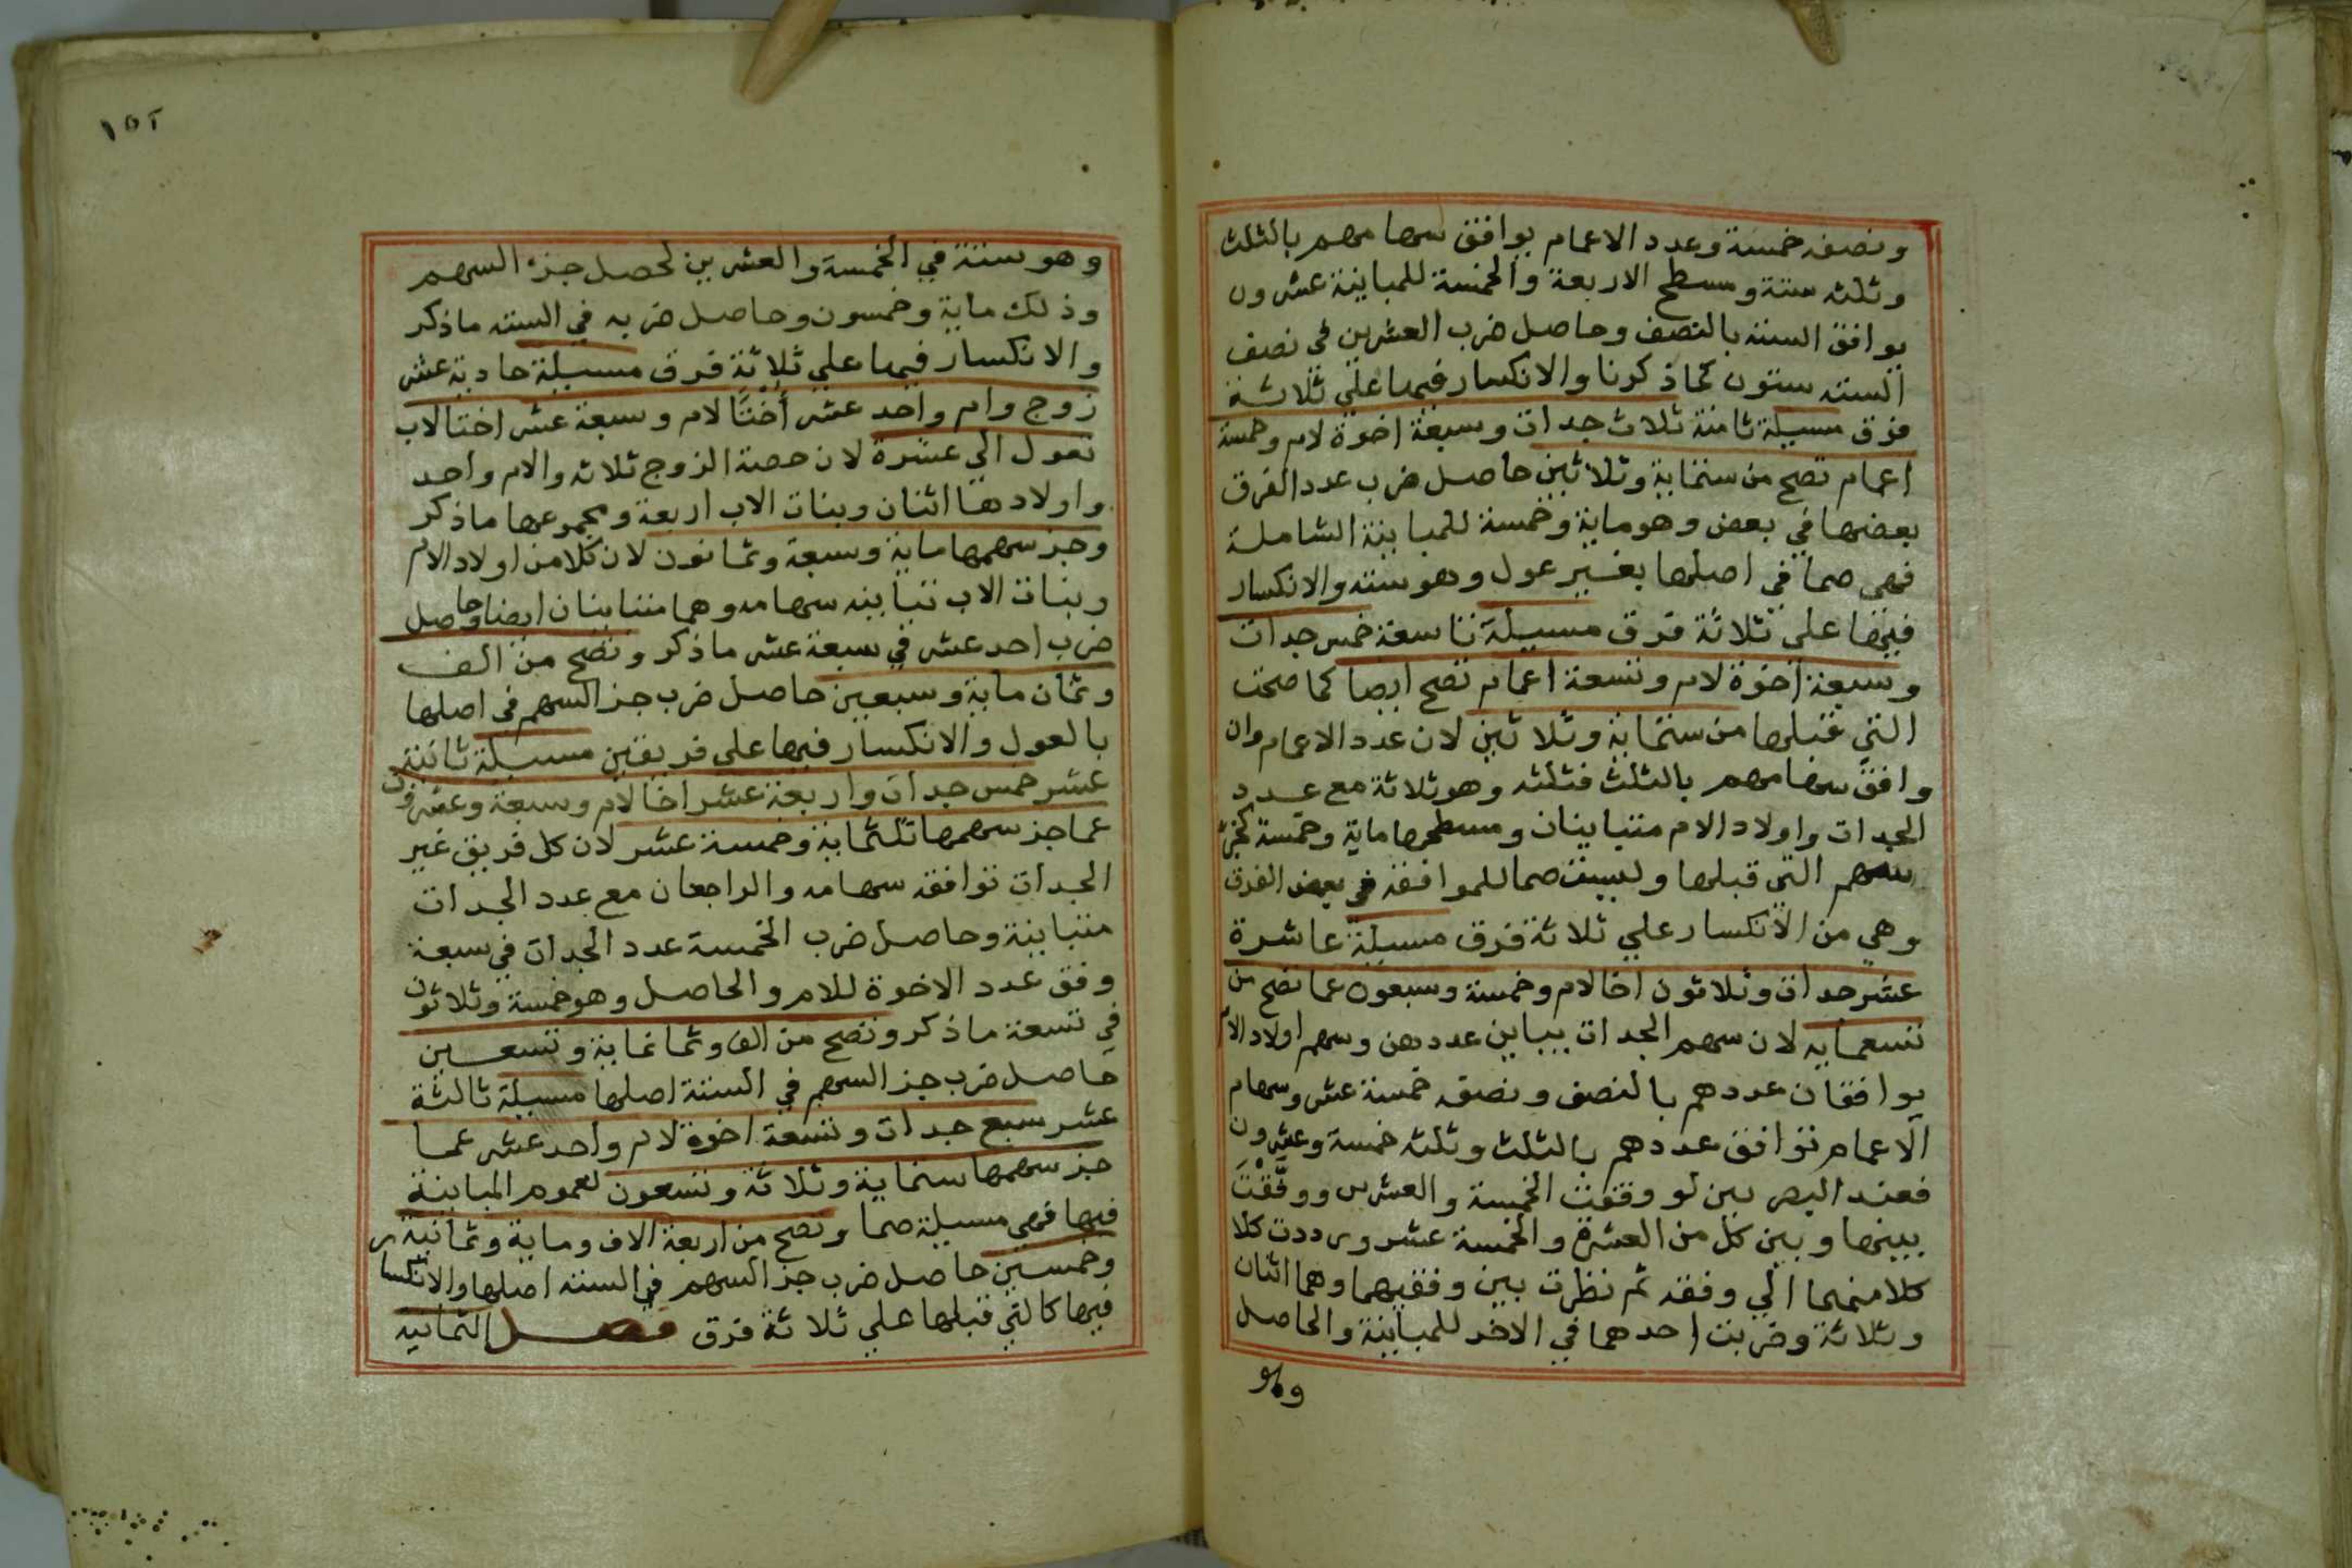 ونصفه خمسة وعدد الاعمام يوافق سهامهم بالثلث
وثلثه ستة ومسطح الاربعة والخمسة للمباينة عشرون
يوافق الستة بالنصف وحاصل ضرب العشرين في نصف
الستة ستون كما ذكرنا والانكسار فيها علي ثلاثة
فرق مسيلة ثامنة ثلاث جدات وسبعة اخوة لام وخمسة
اعمام تصح من ستماية وثلاثين حاصل ضرب عدد الفرق
بعضها في بعض وهو ماية وخمسة للمباينة الشاملة
فهي صما في اصلها بغير عول وهو ستة والانكسار
فيها علي ثلاثة فرق مسيلة تاسعة خمس جدات
وسبعة اخوة لام وتسعة اعمام تصح ايضا كما صحت
التي قبلها من ستماية وثلاثين لان عدد الاعمام وان
وافق سهامهم بالثلث فثلثه وهو ثلاثة مع عدد
الجدات واولاد الام متباينان ومسطحها ماية وخمسة كجزء
سهم التي قبلها وليست صما للموافقة في بعض الفرق
وهي من الانكسار علي ثلاثة فرق مسيلة عاشرة
عشر جدات وثلاثون اخا لام وخمسة وسبعون عما تصح من
تسعماية لان سهم الجدات يباين عددهن وسهم اولاد الام
يوافقان عددهم بالنصف ونصفه خمسة عشر وسهام
الاعمام توافق عددهم بالثلث وثلثه خمسة وعشرون
فعند البصريين لو وقفت الخمسة والعشرين ووفقت
بينها وبين كل من العشرة والخمسة عشر ورددت كلا
كلا منهما الي وفقه ثم نظرت بين وفقيهما وهما اثنان
وثلاثة وضربت احدهما في الاخر للمباينة والحاصل
وهو
١٥٢
وهو ستة في الخمسة والعشرين لحصل جزء السهم
وذلك ماية وخمسون وحاصل ضربه في الستة ماذكر
والانكسار فيها علي ثلاثة فرق مسيلة حادية عشر
زوج وام واحد عشر أختًا لام وسبعة عشر اختا لاب
تعول الي عشرة لان حصة الزوج ثلاثة والام واحد
واولادها اثنان وبنات الاب اربعة ومجموعها ماذكر
وجز سهمها ماية وسبعة وثمانون لان كلا من اولاد الام
وبنات الاب تباينه سهامه وهما متباينان ايضا وحاصل
ضرب احد عشر في سبعة عشر ماذكر وتصح من الف
وثمان ماية وسبعين حاصل ضرب جز السهم في اصلها
بالعول والانكسار فيها علي فريقين مسيلة ثانية
عشر خمس جدات واربعة عشر اخا لام وسبعة وعشرون
عما جز سهمها ثلثماية وخمسة عشر لان كل فريق غير
الجدات توافقه سهامه والراجعان مع عدد الجدات
متباينة وحاصل ضرب الخمسة عدد الجدات في سبعة
وفق عدد الاخوة للام والحاصل وهو خمسة وثلاثون
في تسعة ماذكر وتصح من الف وثمانماية وتسعين
حاصل ضرب جز السهم في الستة اصلها مسيلة ثالثة
عشر سبع جدات وتسعة اخوة لام واحد عشر عما
جز سهمها ستماية وثلاثة وتسعون لعموم المباينة
فيها فهي مسيلة صما وتصح من اربعة الاف وماية وثمانية
وخمسين حاصل ضرب جز السهم في الستة اصلها والانكسار
فيها كالتي قبلها علي ثلاثة فرق فصل الثمانيه